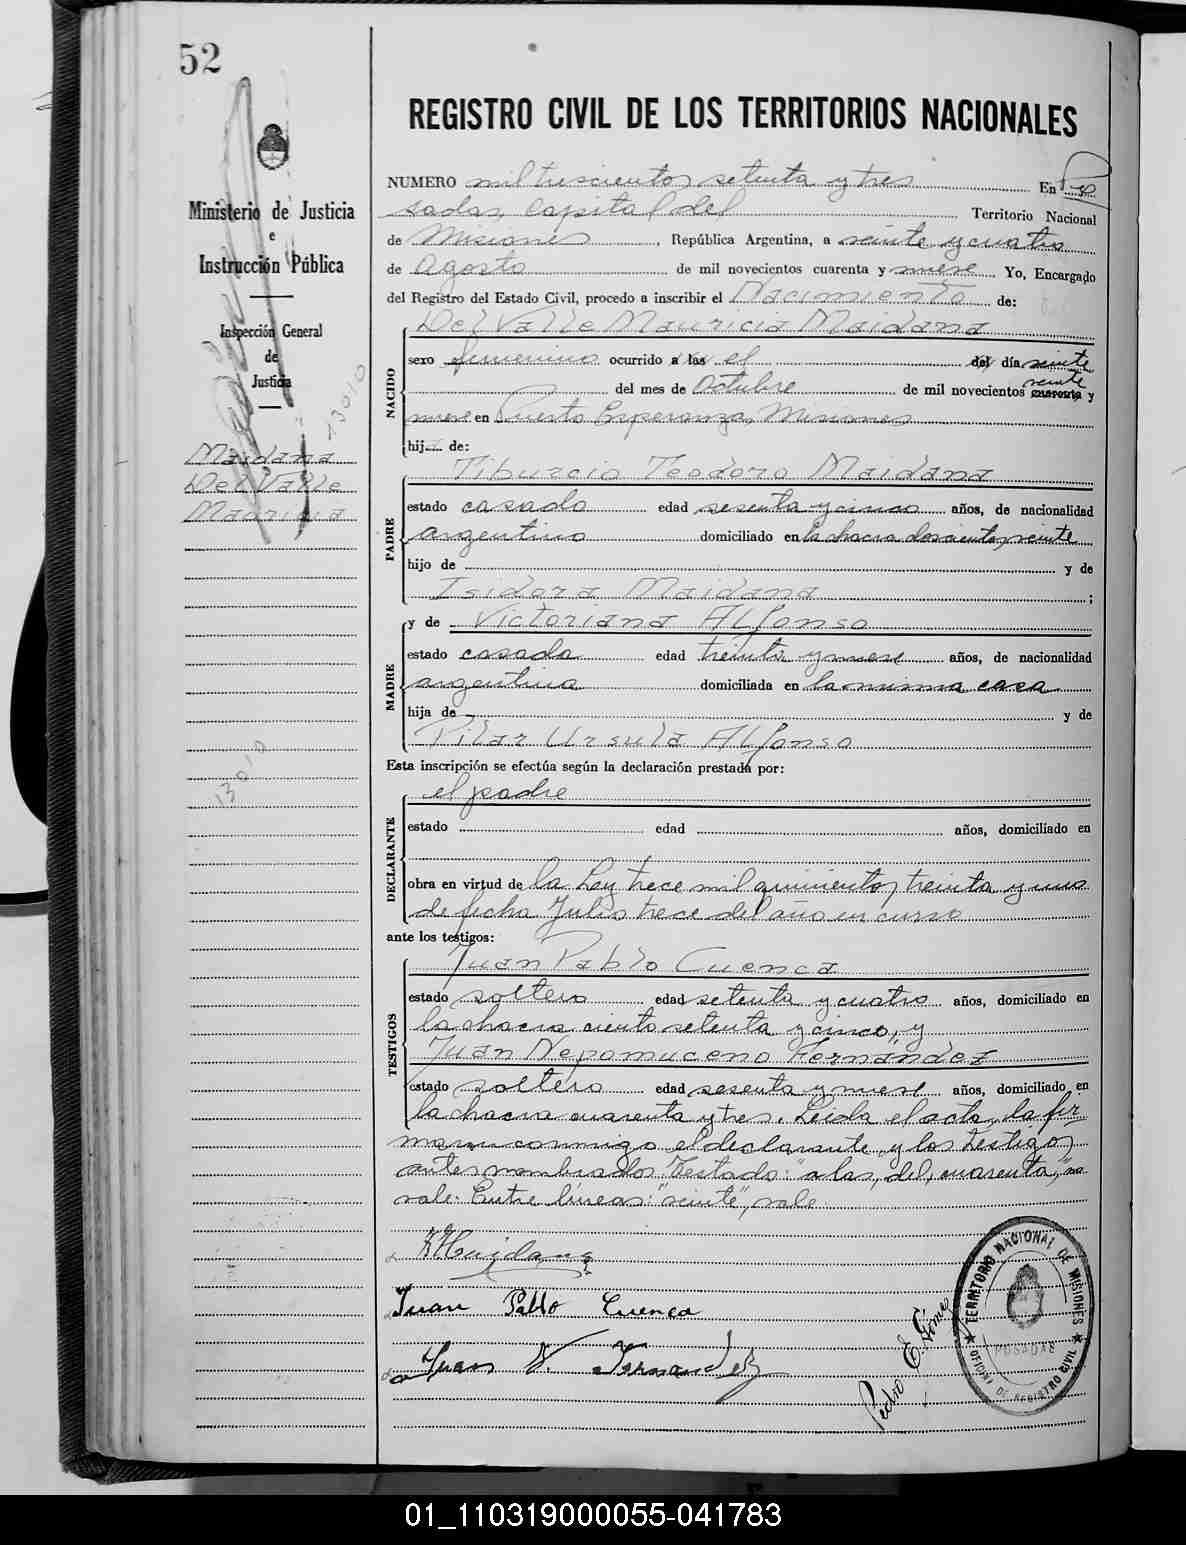 52
REGISTRO CIVIL DE LOS TERRITORIOS NACIONALES
Ministerio de Justicia
e
Instrucción Pública
Inspección General
de
Justicia
13010
Maidana
Del Valle
Mauricia
13010
NUMERO mil trescientos setenta y tres En Po
sadas, Capital del Territorio Nacional
de Misiones, República Argentina, a veinte y cuatro
de Agosto de mil novecientos cuarenta y nueve Yo, Encargado
del Registro del Estado Civil, procedo a inscribir el Nacimiento de:
NACIDO
Del Valle Mauricia Maidana
sexo femenino ocurrido a las el del día veinte
veinte
del mes de Octubre de mil novecientos cuarenta y
nueve en Puerto Esperanza, Misiones
hija de:
PADRE
Tiburcio Teodoro Maidana
estado casado edad sesenta y cinco años, de nacionalidad
argentino domiciliado en la chacra doscientos veinte
hijo de y de
Isidora Maidana;
MADRE
y de Victoriana Alfonso
estado casada edad treinta y nueve años, de nacionalidad
argentina domiciliada en la misma casa
hija de y de
Pilar Ursula Alfonso
Esta inscripción se efectúa según la declaración prestada por:
DECLARANTE
el padre
estado edad años, domiciliado en
obra en virtud de la Ley trece mil quinientos treinta y uno
de fecha Julio trece del año en curso
ante los testigos:
TESTIGOS
Juan Pablo Cuenca
estado soltero edad setenta y cuatro años, domiciliado en
la chacra ciento setenta y cinco, y
Juan Nepomuceno Fernandez
estado soltero edad sesenta y nueve años, domiciliado en
la chacra cuarenta y tres. Leida el acta, la fir
man conmigo el declarante y los testigos
antes nombrados. Testado: "a las, del, cuarenta," no
vale. Entre líneas: "veinte", vale
Maidana
Juan Pablo Cuenca
Juan N. Fernandez
Pedro E. Gómez
TERRITORIO NACIONAL DE MISIONES
POSADAS
OFICINA DE REGISTRO CIVIL
01_110319000055-041783